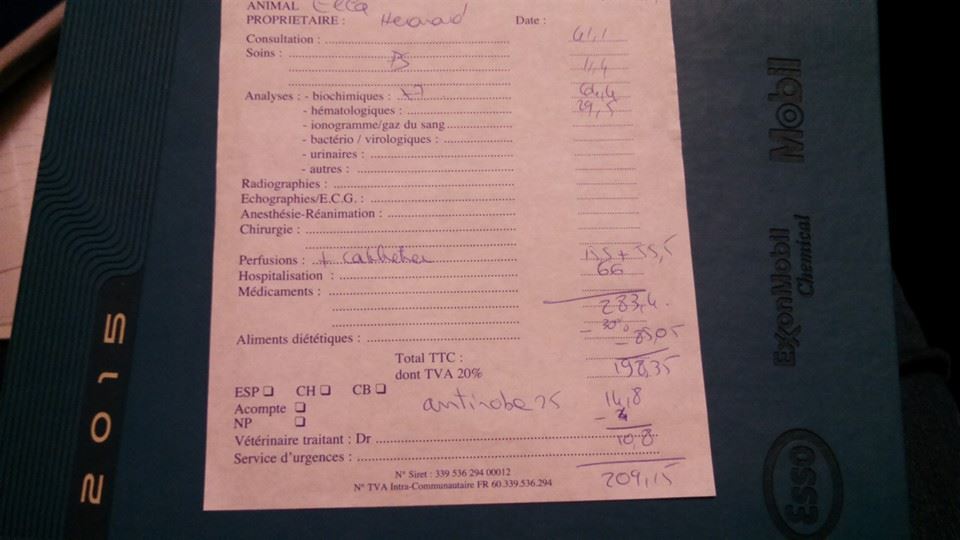 ANIMAL Ella
PROPRIETAIRE : Date :
Consultation : 41,1
Soins :
11,4
Analyses : - biochimiques : x7 64,4
- hématologiques : 29,5
- ionogramme/gaz du sang
- bactério / virologiques :
- urinaires :
- autres :
Radiographies :
Echographies/E.C.G. :
Anesthésie-Réanimation :
Chirurgie :
Perfusions : + catheter 15,5 + 55,5
Hospitalisation : 66
Médicaments :
283,4
- 30%
Aliments diététiques : - 85,05
Total TTC : 198,35
dont TVA 20%
ESP CH CB antirobe 25 14,8
Acompte - 4
NP
Vétérinaire traitant : Dr 10,8
Service d'urgences :
209,15
N° Siret : 339 536 294 00012
N° TVA Intra-Communautaire FR 60.339.536.294
2015
Mobil
ExxonMobil
Chemical
Esso